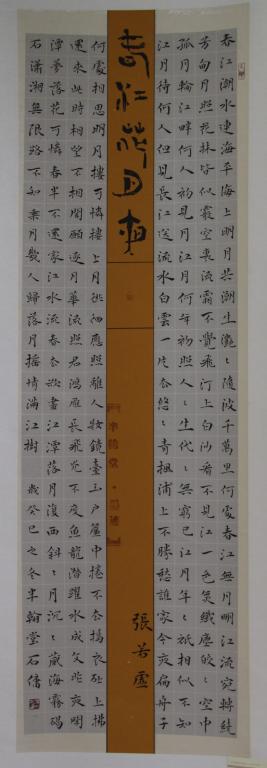 春江潮水連海平海上明月共潮生灩〻隨波千萬里何處春江無月明江流宛轉繞
芳甸月照花林皆似霰空裏流霜不覺飛汀上白沙看不見江一色無纖塵皎〻空中
孤月輪江畔何人初見月江月何年初照人〻生代〻無窮已江月年〻祇相似不知
江月待何人但見長江送流水白雲一片去悠〻青楓浦上不勝愁誰家今夜扁舟子
春江花月夜
張若虛
何處相思明月樓可憐樓上月徘徊應照離人妝鏡臺玉戶簾中捲不去搗衣砧上拂
還來此時相望不相聞願逐月華流照君鴻雁長飛光不度魚龍潛躍水成文昨夜閒
潭夢落花可憐春半不還家江水流春去欲盡江潭落月復西斜〻月沉〻藏海霧碣
石瀟湘無限路不知乘月幾人歸落月搖情滿江樹 歲癸巳之冬半翰堂石